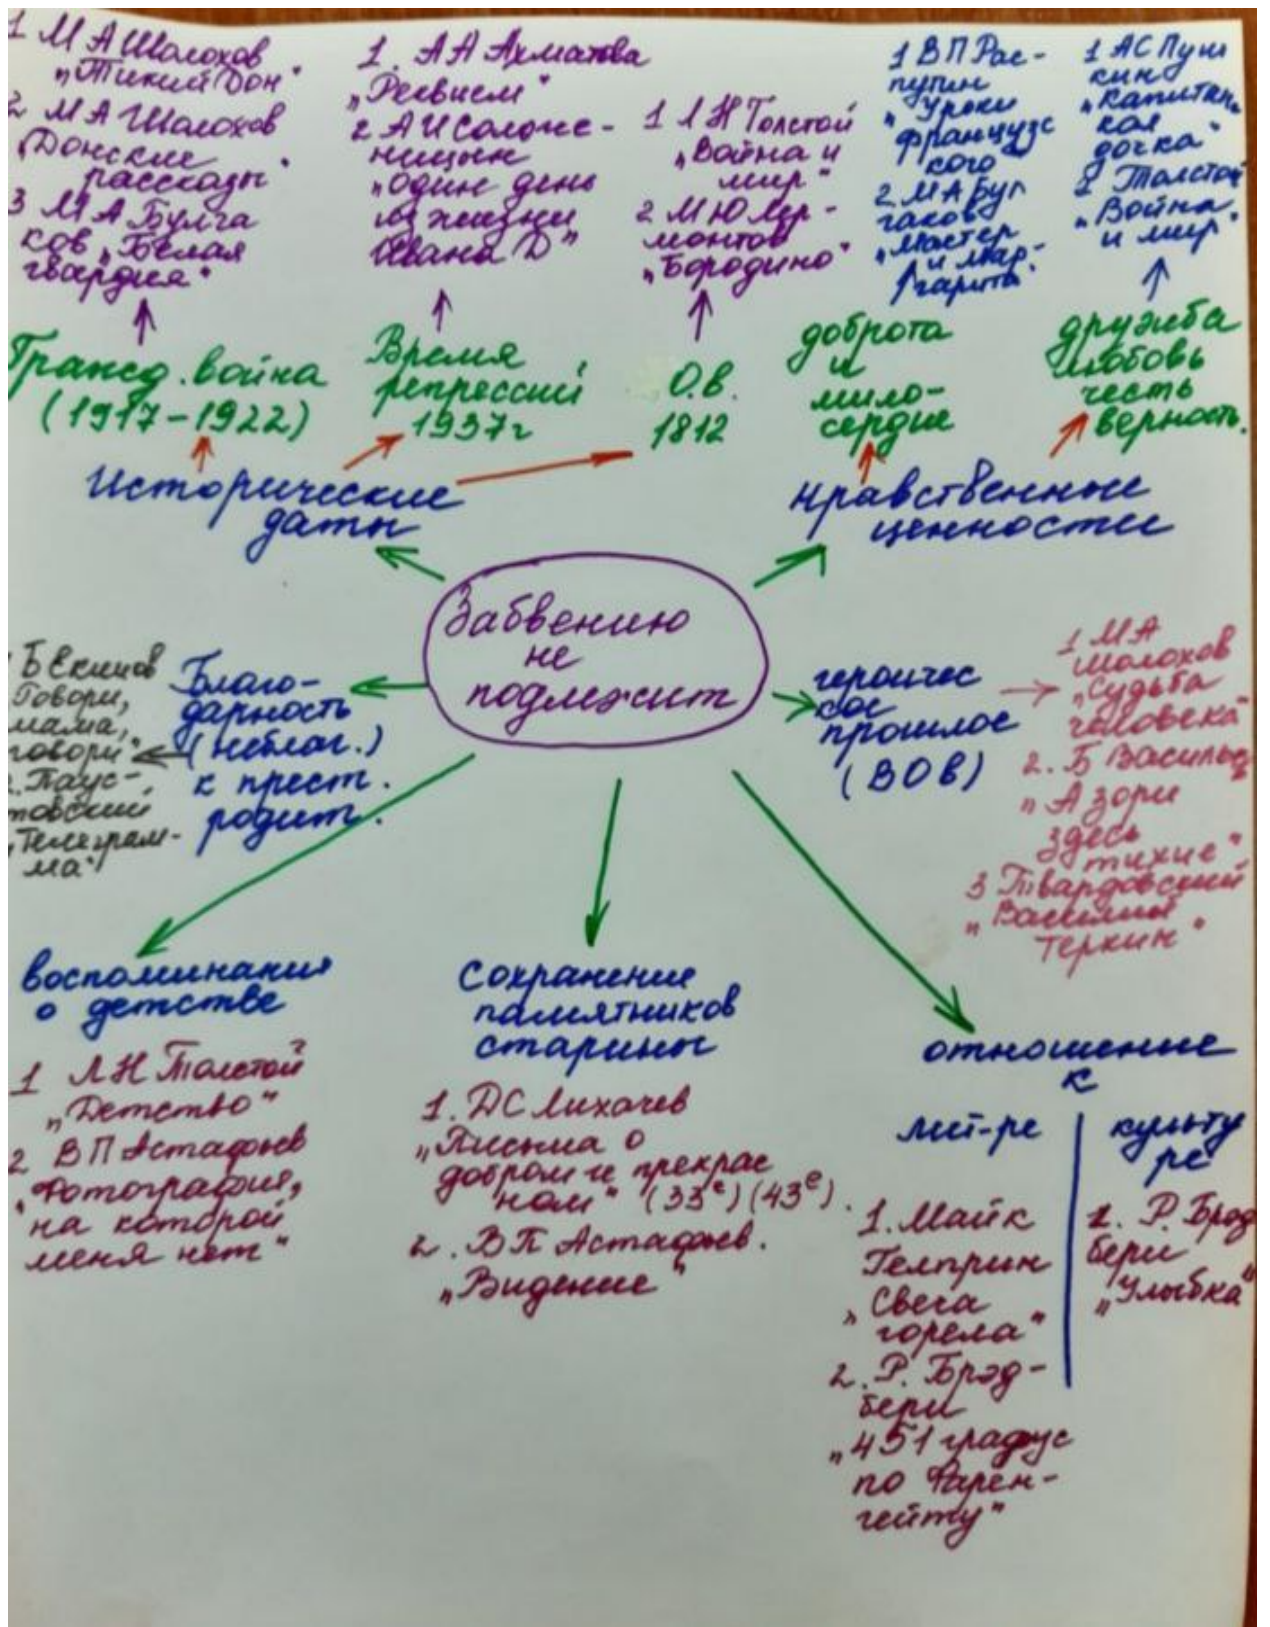 1 МА Шолохов
„Тихий Дон"
2 МА Шолохов
„Донские
рассказы"
3 МА Булга
ков „Белая
гвардия"
1. АА Ахматова
„Реквием"
2 АИ Солже-
ницын
„Один день
из жизни
Ивана Д"
1 ЛН Толстой
„Война и
мир"
2 МЮ Лер-
монтов
„Бородино"
1 ВП Рас-
путин
„Уроки
французс
кого"
2 МА Бул
гаков
„Мастер
и Мар-
гарита"
1 АС Пуш
кин
„Капитан
кая
дочка"
2 Толстой
„Война
и мир"
Гражд. война
(1917-1922)
Время
репрессий
1937г
О.В.
1812
доброта
и
мило-
сердие
дружба
любовь
честь
верность.
Исторические
даты
Нравственные
ценности
Забвению
не
подлежит
Благо-
дарность
(неблаг.)
к прест.
родит.
Б Екимов
Говори,
мама,
говори"
2. Паус-
товский
„Телеграм-
ма"
героичес
кое
прошлое
(ВОв)
1 МА
Шолохов
„Судьба
человека"
2. Б Васильев
„А зори
здесь
тихие"
3 Твардовский
„Василий
Теркин"
воспоминания
о детстве
1 ЛН Толстой
„Детство"
2 ВП Астафьев
„Фотография,
на которой
меня нет"
Сохранение
памятников
старины
1. ДС Лихачев
„Письма о
добром и прекрас
ном" (33е) (43е).
2. ВП Астафьев.
„Видение"
отношение
к
лит-ре
культу
ре
1. Майк
Гелприн
„Свеча
горела"
2. Р. Брэд-
бери
„451 градус
по Фарен-
гейту"
1. Р. Брэд
бери
„Улыбка"